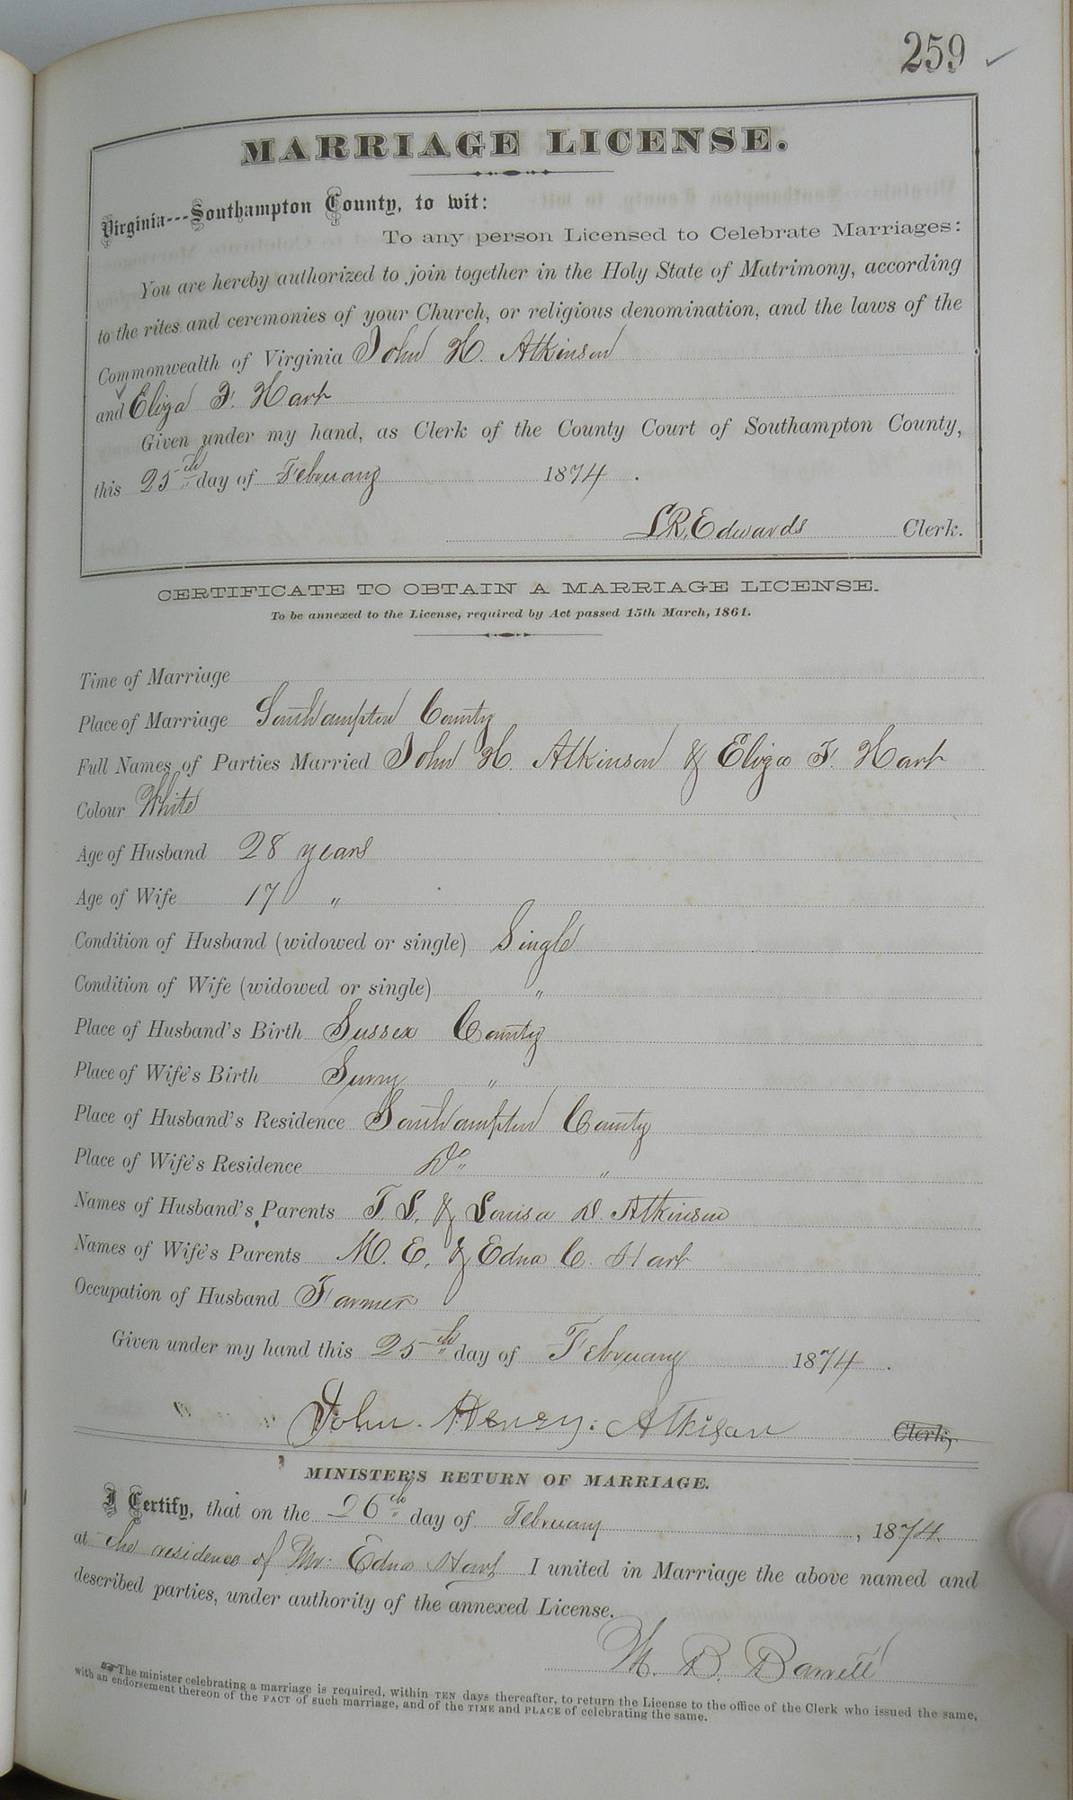 259 ✓
MARRIAGE LICENSE.
Virginia---Southampton County, to wit:
To any person Licensed to Celebrate Marriages:
You are hereby authorized to join together in the Holy State of Matrimony, according
to the rites and ceremonies of your Church, or religious denomination, and the laws of the
Commonwealth of Virginia John H. Atkinson
and Eliza F. Hart
Given under my hand, as Clerk of the County Court of Southampton County,
this 25th day of February 1874.
L.R. Edwards Clerk.
CERTIFICATE TO OBTAIN A MARRIAGE LICENSE.
To be annexed to the License, required by Act passed 15th March, 1861.
Time of Marriage
Place of Marriage Southampton County
Full Names of Parties Married John H. Atkinson & Eliza F. Hart
Colour White
Age of Husband 28 years
Age of Wife 17 "
Condition of Husband (widowed or single) Single
Condition of Wife (widowed or single) "
Place of Husband's Birth Sussex County
Place of Wife's Birth Surry "
Place of Husband's Residence Southampton County
Place of Wife's Residence Do "
Names of Husband's Parents T. S. & Louisa D. Atkinson
Names of Wife's Parents M. E. & Edna C. Hart
Occupation of Husband Farmer
Given under my hand this 25th day of February 1874.
John. Henry. Atkison Clerk,
MINISTER'S RETURN OF MARRIAGE.
I Certify, that on the 26th day of February, 1874.
at the residence of Mrs. Edna Hart I united in Marriage the above named and
described parties, under authority of the annexed License.
M. B. Barrett
☞The minister celebrating a marriage is required, within TEN days thereafter, to return the License to the office of the Clerk who issued the same,
with an endorsement thereon of the FACT of such marriage, and of the TIME and PLACE of celebrating the same.